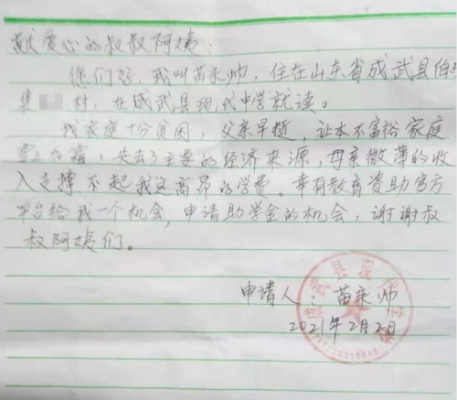 献爱心的叔叔阿姨：
您们好，我叫苗承帅，住在山东省成武县伯
集 村，在成武县现代中学就读。
我家庭十分贫困，父亲早逝，让本不富裕家庭
雪上加霜，失去了主要的经济来源，母亲微薄的收
入支撑不起我这高昂的学费。幸有教育资助官方
平台给我一个机会，申请助学金的机会，谢谢叔
叔阿姨们。
申请人：苗承帅
2021年2月2日